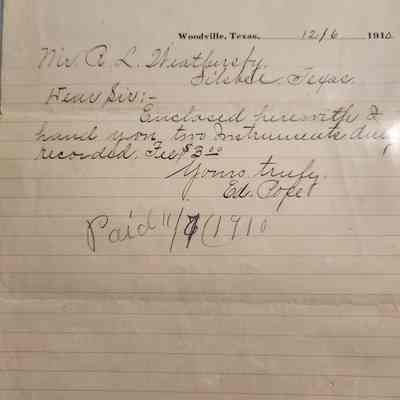 Woodville, Texas, 12/6 1910.
Mr. R. L. Weathersby,
Silsbee, Texas.
Dear Sir:-
Enclosed herewith I
hand you two Instruments duly
recorded. Fee $3.00
Yours truly,
Ed. Pope
Paid 11/7/1910